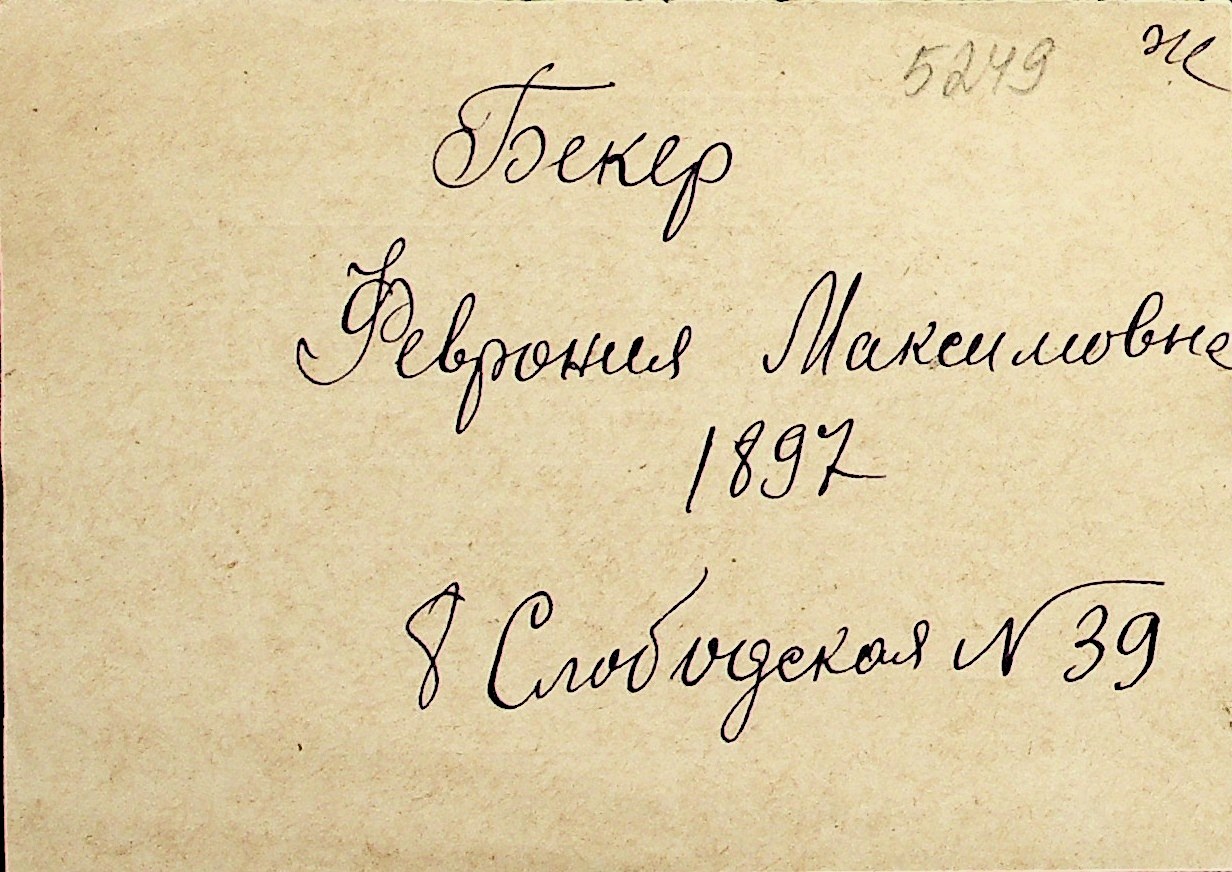 5249 ж
Бекер
Феврония Максимовна
1897
8 Слободская N 39